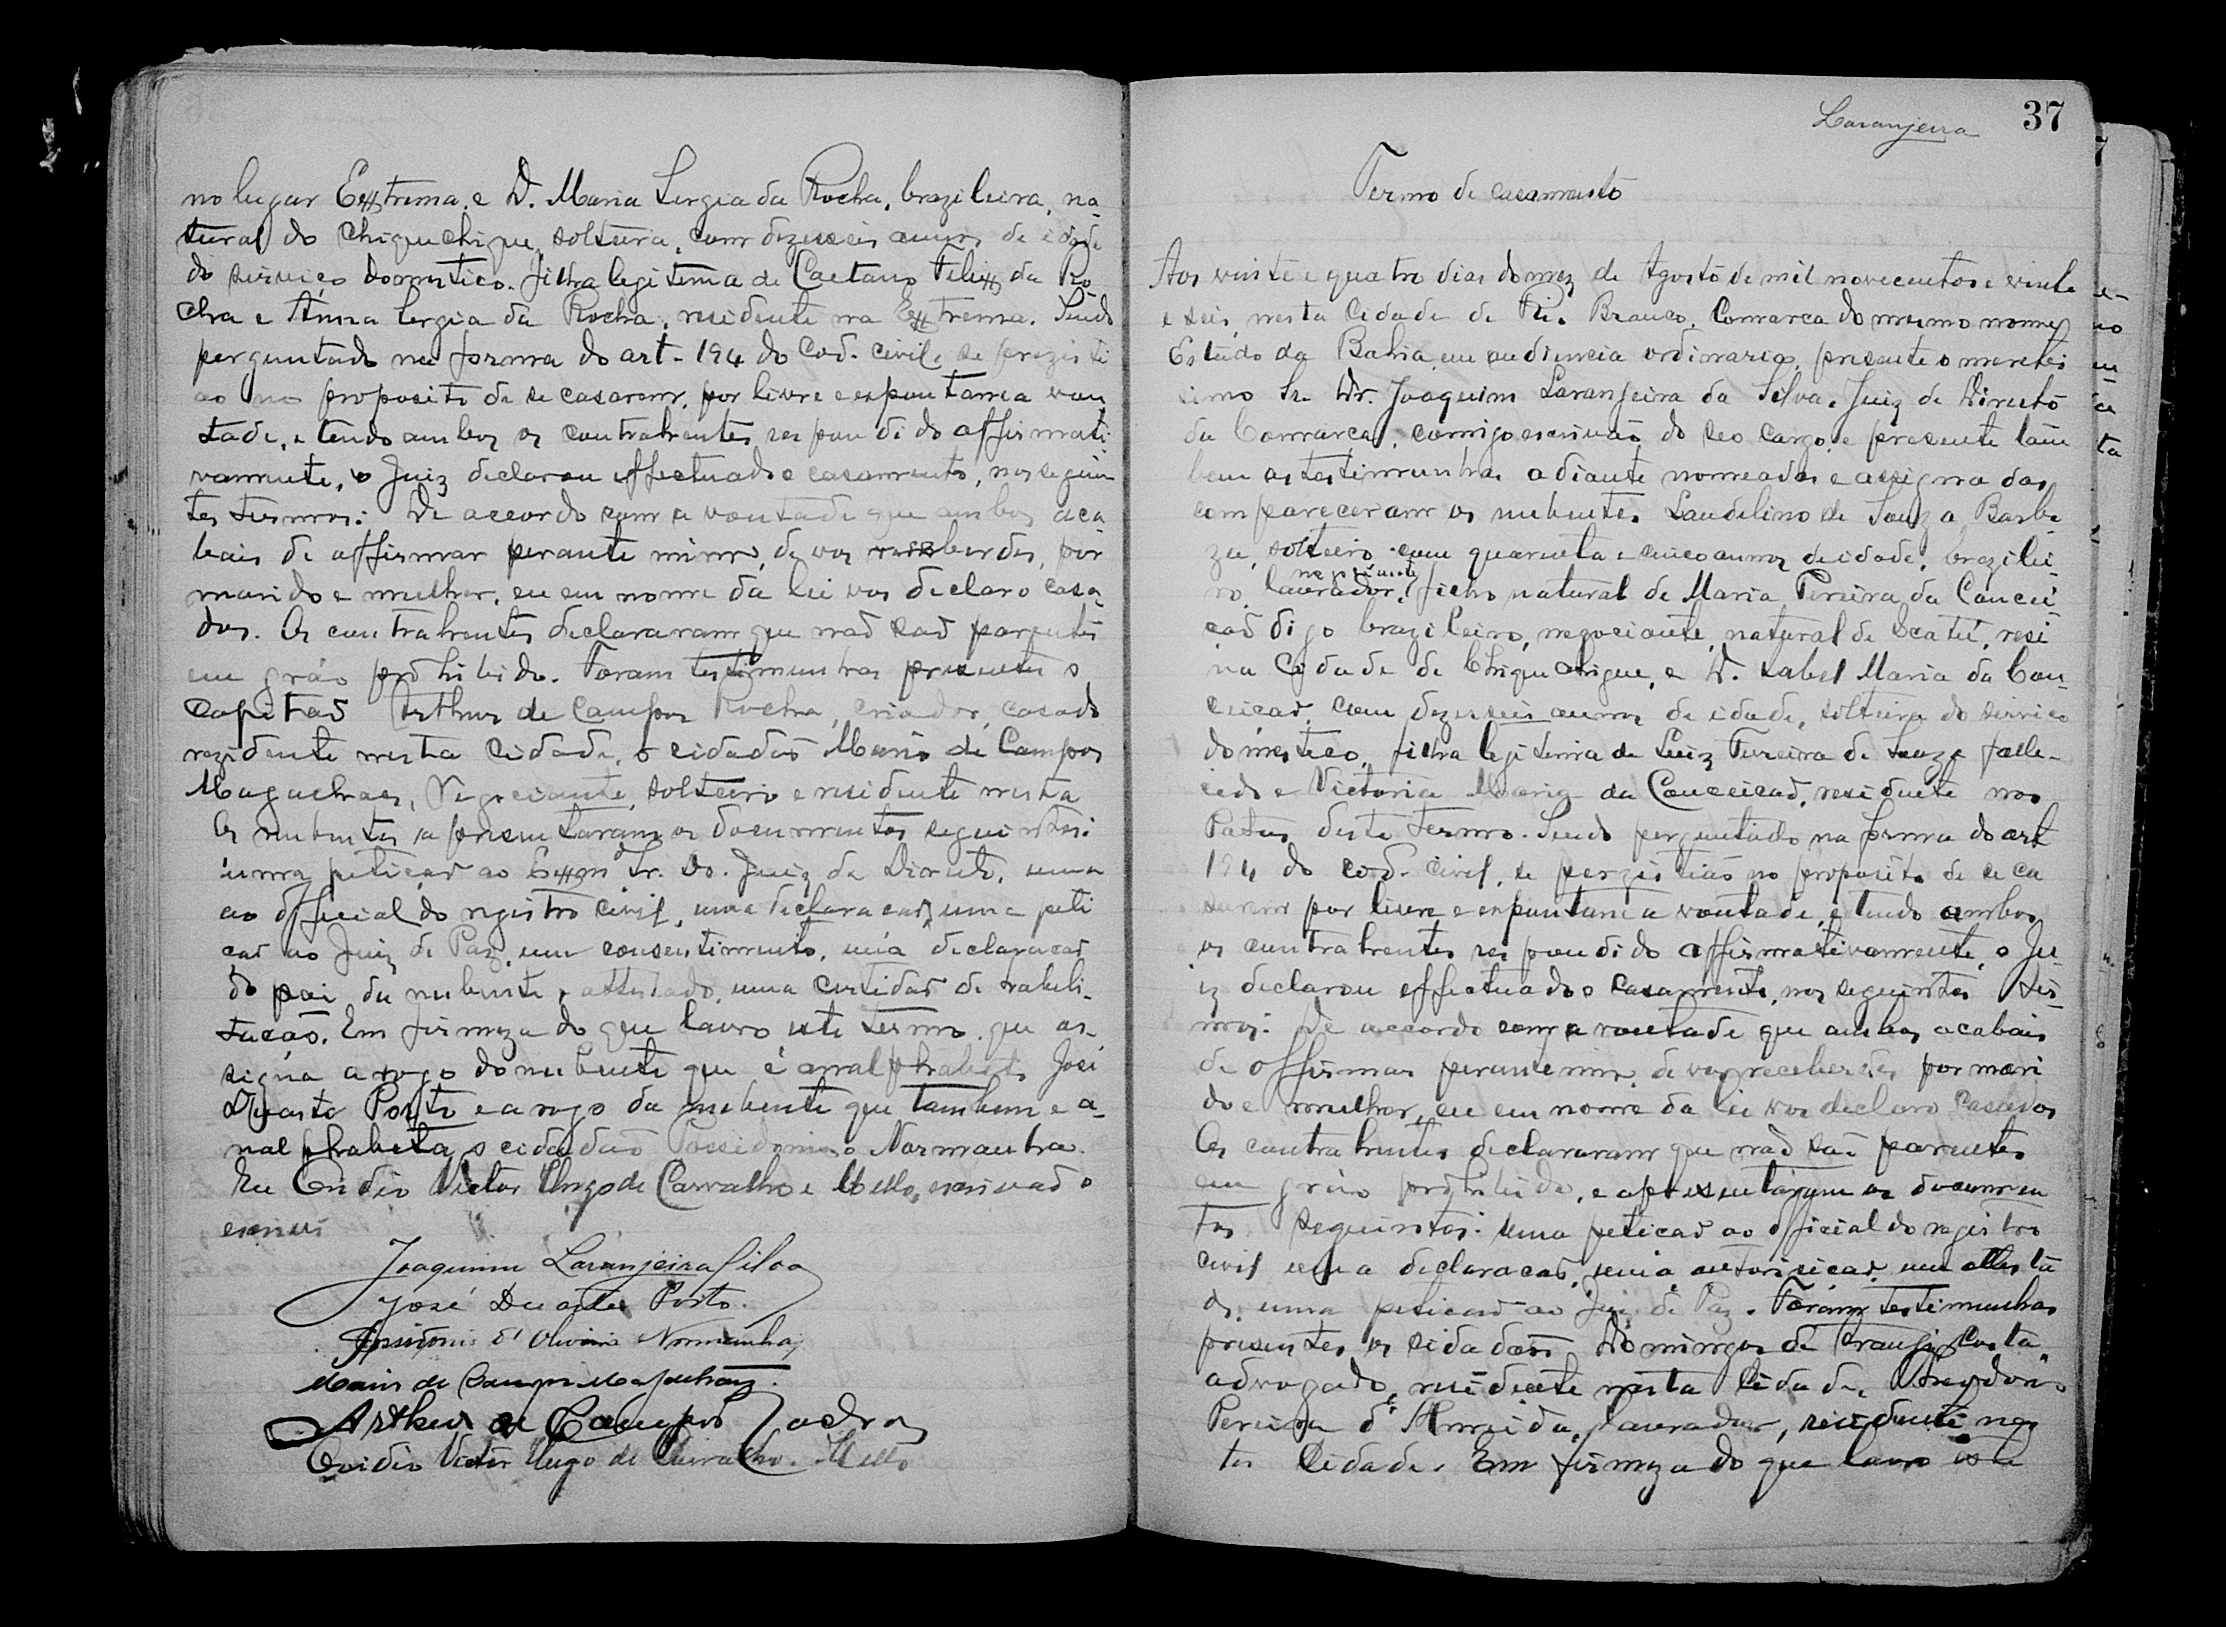 no lugar Exxtrema, e D. Maria Sergia da Rocha, brazileira, na-
tural do Chiquechique, solteira, com dezeseis annos de idade
do serviço domestico, filha legitima de Caetano Felixx da Ro
cha e Anna Sergia da Rocha, residente na Exxtrema. Sendo
perguntado na forma do art. 194 do Cod. Civil, se prezisti
ao no proposito de se casarem, por livre e expontanea von
tade, e tendo ambos os contrahentes respondido affirmati
vamente, o Juiz declarou effectuado o casamento, nos seguin
tes termos: De accordo com a vontade que ambos aca
bais de affirmar perante mim, de vos receberdes, por
marido e mulher, eu em nome da lei vos declaro casa-
dos. Os contrahentes declararam que não são parentes
em gráo prohibido. Foram testimunhas presentes o
Capitão Arthur de Campos Rocha, criador, casado
rezidente nesta Cidade, o cidadão Mario de Campos
Magalhães, Negociante, solteiro e residente nesta
Os nubentes apresentaram os documentos seguintes:
uma petição ao Exxmº Sr. Dr. Juiz de Direito, uma
ao official do registro civil, uma declaração, uma peti
ção ao Juiz de Paz, um consentimento, uma declaração
do pai da nubente, attestado, uma certidão de habili-
tação. Em firmeza do que lavro este termo que as-
signa a rogo do nubente que é analphabeto José
Duarte Porto e a rogo da nubente que tambem e a-
nalphabeta o cidadão Possidonio Normanha.
Eu Ovidio Victor Hugo de Carvalho e Mello, escrivão o
escrevi
Joaquim Laranjeira Silva
José Duarte Porto.
Possidonio d'Oliveira Normanha
Mario de Campos Magalhães.
Arthur de Campos Rocha
Ovidio Victor Hugo de Carvalho e Mello
Laranjeira 37
Termo de casamento
Aos vinte e quatro dias do mez de Agosto de mil novecentos e vinte
e seis, nesta Cidade de Rio Branco, Comarca do mesmo nome
Estado da Bahia, em audiencia ordinaria, presente o meretis
simo Sr. Dr. Joaquim Laranjeira da Silva, Juiz de Direito
da Comarca, comigo escrivão do seo cargo, e presente tam
bem as testimunhas adiante nomeadas e assignadas
compareceram os nubentes Laudelino de Souza Barbo
za, solteiro com quarenta e cinco annos de idade, brazilei-
negociante
ro, lavrador, filho natural de Maria Pereira da Concei
ção digo brazileiro, negociante, natural de Icatú, resi
na Cidade de Chiquechique, e D. Isabel Maria da Con-
ceição, com dezeseis annos de idade, solteira do serviço
domestico, filha legitima de Luiz Ferreira de Souza falle-
cido e Victoria Maria da Conceição, residente nos
Patos deste termo. Sendo perguntado na forma do art
194 do cod. civil, se perzistião no proposito de se ca
sarem por livre e expontanea vontade, e tendo ambos
os contrahentes respondido affirmativamente, o Ju-
iz declarou effectuado o casamento, nos seguintes ter
mos: De accordo com a vontade que ambos acabais
de affirmar perante mim, de vos receberdes por mari
do e mulher, eu em nome da lei vos declaro casados
Os contrahentes declararam que não são parentes
em gráo prohibido, e apresentaram os documen
tos seguintes: uma petição ao official do registro
civil uma declaração, uma autorisação, um attesta
do, uma petição ao Juiz de Paz. Foram testimunhas
presentes os cidadãos Domingos de Araujo Costa
advogado, residente nesta Cidade,
Pereira d'Almeida, lavrador, residente nes
ta Cidade. Em firmeza do que lavro este